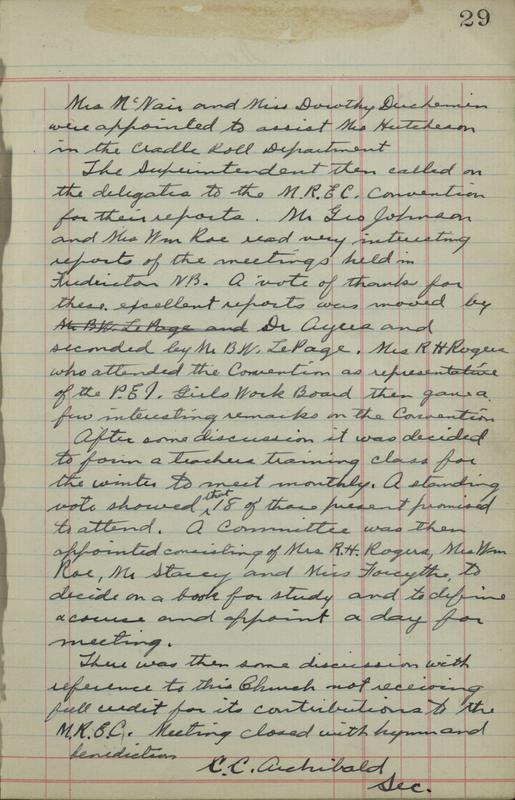 29
Mrs McNair and Miss Dorothy Duchemin
were appointed to assist Mrs Hutcheson
in the Cradle Roll Department
The Superintendent then called on
the delegates to the M.R.E.C. Convention
for their reports. Mr Geo Johnson
and Mrs Wm Roe read very interesting
reports of the meetings held in
Fredricton NB. A vote of thanks for
these excellent reports was moved by
Mr B.W. LePage and Dr Ayers and
seconded by Mr B.W. LePage. Mrs R H Rogers
who attended the Convention as representative
of the P.E.I. Girls Work Board then gave a
few interesting remarks on the Convention
After some discussion it was decided
to form a teachers training class for
the winter to meet monthly. A standing
vote showed that 18 of those present promised
to attend. A Committee was then
appointed consisting of Mrs R.H. Rogers, Mrs Wm
Roe, Mr Stacey and Miss Forcythe, to
decide on a book for study and to define
a course and appoint a day for
meeting.
There was then some discussion with
reference to this Church not receiving
full credit for its contributions to the
M.R.E.C. Meeting closed with hymn and
benediction
C.C. Archibald
Sec.